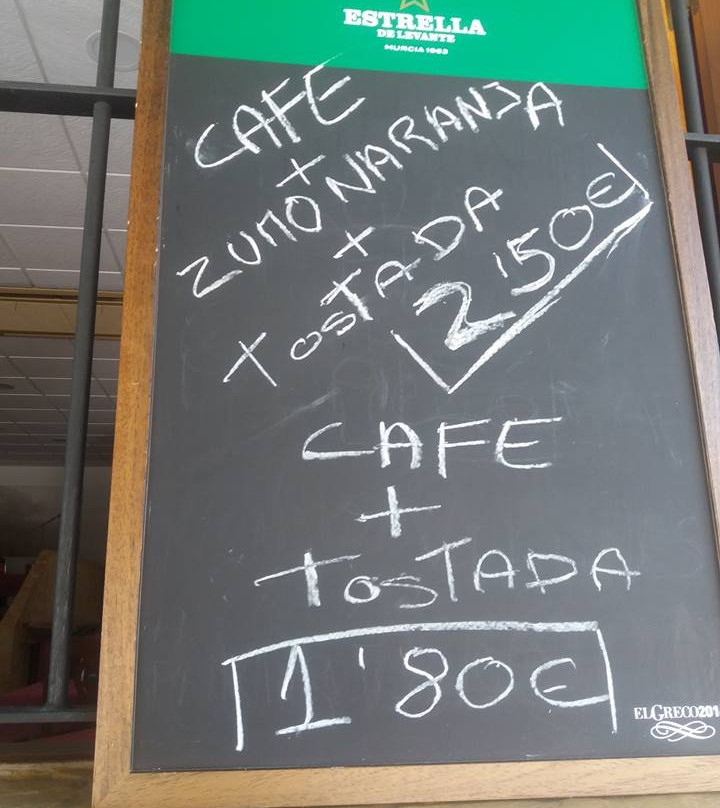 ESTRELLA
DE LEVANTE
MURCIA 1963
CAFE
+
ZUMO NARANJA
+
TOSTADA
2'50€
CAFE
+
TOSTADA
1'80€
ELGRECO201